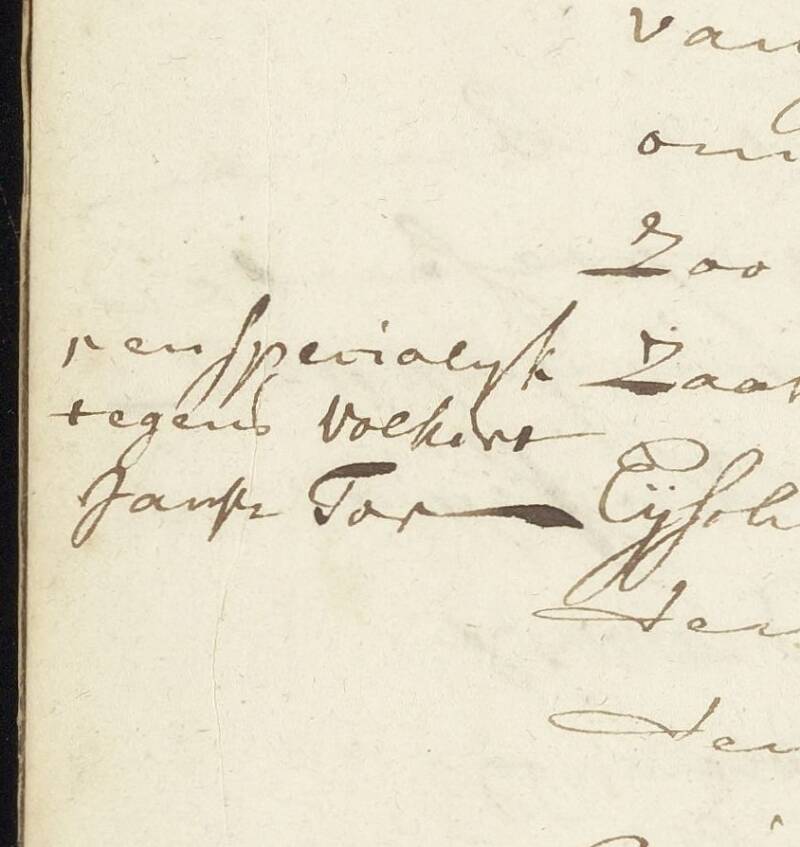 van
om
Zoo
en specialijk Zaa
tegens Volkert
Jansz Tor Eijsch
den
den